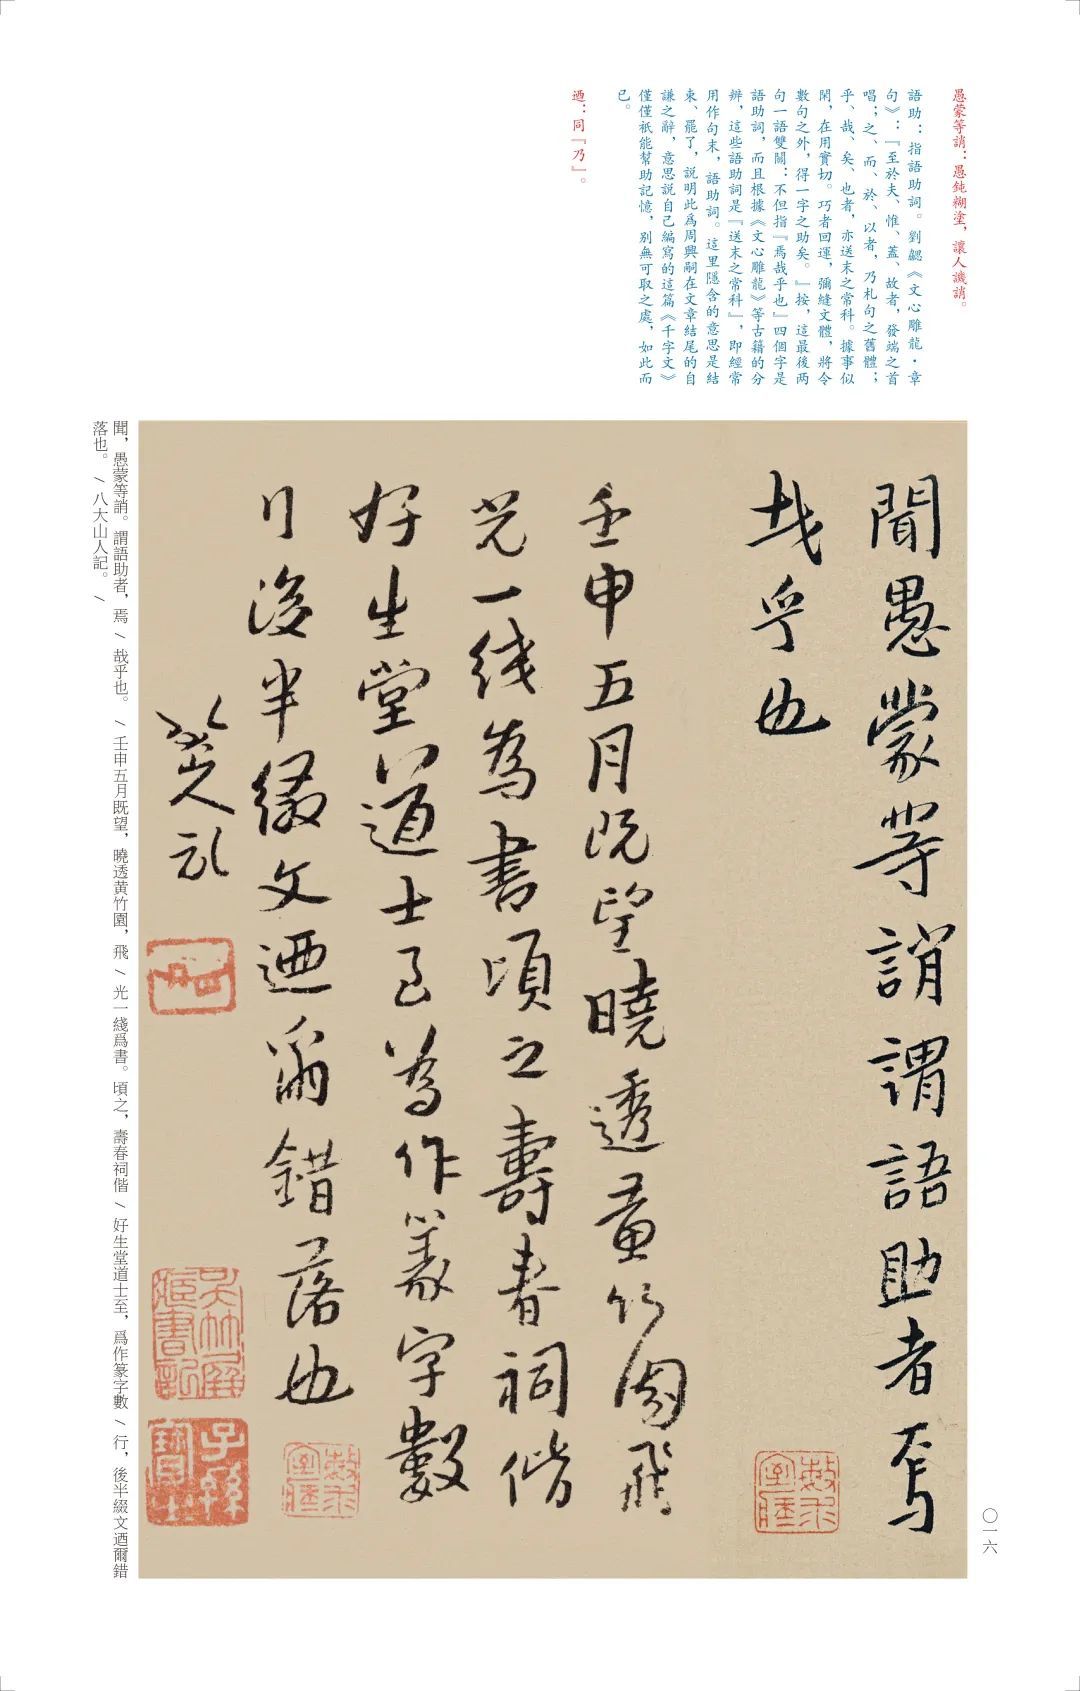 愚蒙等誚：愚鈍糊塗，讓人譏誚。
語助：指語助詞。劉勰《文心雕龍·章
句》：『至於夫、惟、蓋、故者，發端之首
唱；之、而、於、以者，乃札句之舊體；
乎、哉、矣、也者，亦送末之常科。據事似
閑，在用實切。巧者回運，彌縫文體，將令
數句之外，得一字之助矣。』按，這最後两
句一語雙關：不但指『焉哉乎也』四個字是
語助詞，而且根據《文心雕龍》等古籍的分
辨，這些語助詞是『送末之常科』，即經常
用作句末，語助詞。這里隱含的意思是結
束、罷了，説明此爲周興嗣在文章結尾的自
謙之辭，意思説自己編寫的這篇《千字文》
僅僅衹能幫助記憶，别無可取之處，如此而
已。
迺：同『乃』。
聞愚蒙等誚謂語助者焉
哉乎也
壬申五月既望曉透黃竹園飛
光一綫為書頃之壽春祠偕
好生堂道士至為作篆字數
行後半綴文迺爾錯落也
八大山人記
聞，愚蒙等誚。謂語助者，焉 / 哉乎也。 / 壬申五月既望，曉透黄竹園，飛 / 光一綫爲書。頃之，壽春祠偕 / 好生堂道士至，爲作篆字數 / 行，後半綴文迺爾錯
落也。 / 八大山人記。 /
〇一六